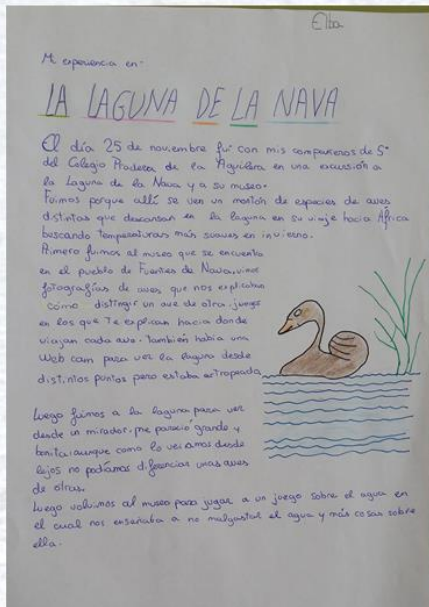 Elba
Mi experiencia en:
LA LAGUNA DE LA NAVA
El día 25 de noviembre fui con mis compañeros de 5º
del Colegio Pradera de la Aguilera en una excursión a
la Laguna de la Nava y a su museo.
Fuimos porque allí se ven un montón de especies de aves
distintas que descansan en la laguna en su viaje hacia África
buscando temperaturas más suaves en invierno.
Primero fuimos al museo que se encuentra
en el pueblo de Fuentes de Nava, vimos
fotografías de aves que nos explicaban
cómo distingir un ave de otra, juegos
en los que Te explican hacia donde
viajan cada ave. también había una
Web cam para ver la laguna desde
distintos puntos pero estaba estropeada
Luego fuimos a la laguna para ver
desde un mirador. me pareció grande y
bonita, aunque como lo veíamos desde
lejos no podíamos diferenciar unas aves
de otras.
Luego volvimos al museo para jugar a un juego sobre el agua en
el cual nos enseñaba a no malgastar el agua y más cosas sobre
ella.